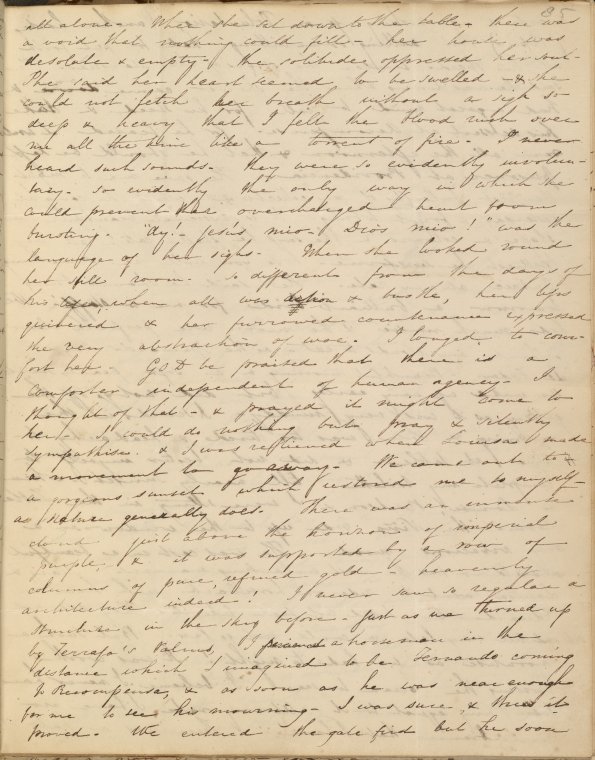 85
all alone. When she sat down to the table - there was
a void that nothing could fill - her house was
desolate & empty - the solitude oppressed her soul -
She said her heart seemed to be swelled - & she
could not fetch her breath without a sigh so
deep & heavy that I felt the blood rush over
me all the time like a torrent of fire. I never
heard such sounds - they were so evidently involun-
tary - so evidently the only way in which she
could prevent her overcharged heart from
bursting - "Ay! - Jesus mio - Dios mio!" was the
language of her sighs. When she looked round
her still room - so different from the days of
his when all was action & bustle, her lips
quivered & her furrowed countenance expressed
the very abstraction of woe. I longed to com-
fort her. GOD be praised that there is a
Comforter independent of human agency - I
thought of that - & prayed it might come to
her - I could do nothing but pray & silently
sympathise. & I was relieved when Louisa made
a movement to go away. We came out to
a gorgeous sunset which restored me to myself -
as Nature generally does. There was an immense
cloud just above the horizon of imperial
purple, & it was supported by a row of
columns of pure, refined gold - heavenly
architecture indeed! I never saw so regular a
structure in the sky before - Just as we turned up
by Terrafa's Palms, I a horseman in the
distance which I imagined to be Fernando coming
to Recompensa, & as soon as he was near enough
for me to see his mourning - I was sure, & thus it
proved. We entered the gate first but he soon